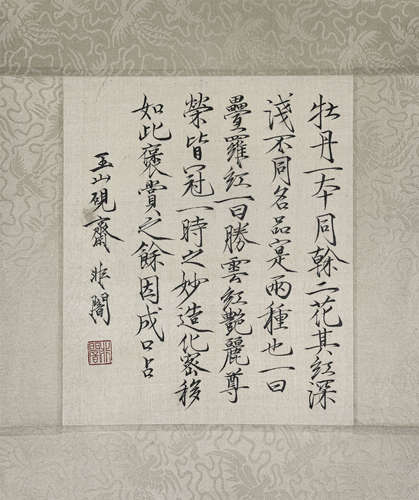 牡丹一本同幹二花其紅深
淺不同名品寔兩種也一曰
疊羅紅一曰勝雲紅艷麗尊
榮皆冠一時之妙造化密移
如此褒賞之餘因成口占
玉山硯齋 非闇